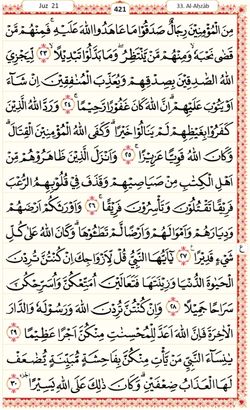 Juz 21 421 33. Al-Ahzāb
مِنَ الْمُؤْمِنِيْنَ رِجَالٌ صَدَقُوْا مَا عَاهَدُوا اللّٰهَ عَلَيْهِ ۚ فَمِنْهُمْ مَّنْ
قَضٰى نَحْبَهٗ وَمِنْهُمْ مَّنْ يَّنْتَظِرُ ۖ وَمَا بَدَّلُوْا تَبْدِيْلًا ﴿٢٣﴾ لِّيَجْزِيَ
اللّٰهُ الصّٰدِقِيْنَ بِصِدْقِهِمْ وَيُعَذِّبَ الْمُنٰفِقِيْنَ اِنْ شَآءَ
اَوْ يَتُوْبَ عَلَيْهِمْ ۗ اِنَّ اللّٰهَ كَانَ غَفُوْرًا رَّحِيْمًا ﴿٢٤﴾ وَرَدَّ اللّٰهُ الَّذِيْنَ
كَفَرُوْا بِغَيْظِهِمْ لَمْ يَنَالُوْا خَيْرًا ۗ وَكَفَى اللّٰهُ الْمُؤْمِنِيْنَ الْقِتَالَ ۗ
وَكَانَ اللّٰهُ قَوِيًّا عَزِيْزًا ﴿٢٥﴾ وَاَنْزَلَ الَّذِيْنَ ظَاهَرُوْهُمْ مِّنْ
اَهْلِ الْكِتٰبِ مِنْ صَيَاصِيْهِمْ وَقَذَفَ فِيْ قُلُوْبِهِمُ الرُّعْبَ
فَرِيْقًا تَقْتُلُوْنَ وَتَأْسِرُوْنَ فَرِيْقًا ﴿٢٦﴾ وَاَوْرَثَكُمْ اَرْضَهُمْ
وَدِيَارَهُمْ وَاَمْوَالَهُمْ وَاَرْضًا لَّمْ تَطَئُوْهَا ۗ وَكَانَ اللّٰهُ عَلٰى كُلِّ
شَيْءٍ قَدِيْرًا ﴿٢٧﴾ يٰٓاَيُّهَا النَّبِيُّ قُلْ لِّاَزْوَاجِكَ اِنْ كُنْتُنَّ تُرِدْنَ
الْحَيٰوةَ الدُّنْيَا وَزِيْنَتَهَا فَتَعَالَيْنَ اُمَتِّعْكُنَّ وَاُسَرِّحْكُنَّ
سَرَاحًا جَمِيْلًا ﴿٢٨﴾ وَاِنْ كُنْتُنَّ تُرِدْنَ اللّٰهَ وَرَسُوْلَهٗ وَالدَّارَ
الْاٰخِرَةَ فَاِنَّ اللّٰهَ اَعَدَّ لِلْمُحْسِنٰتِ مِنْكُنَّ اَجْرًا عَظِيْمًا ﴿٢٩﴾
يٰنِسَآءَ النَّبِيِّ مَنْ يَّأْتِ مِنْكُنَّ بِفَاحِشَةٍ مُّبَيِّنَةٍ يُّضٰعَفْ
لَهَا الْعَذَابُ ضِعْفَيْنِ ۗ وَكَانَ ذٰلِكَ عَلَى اللّٰهِ يَسِيْرًا ﴿٣٠﴾